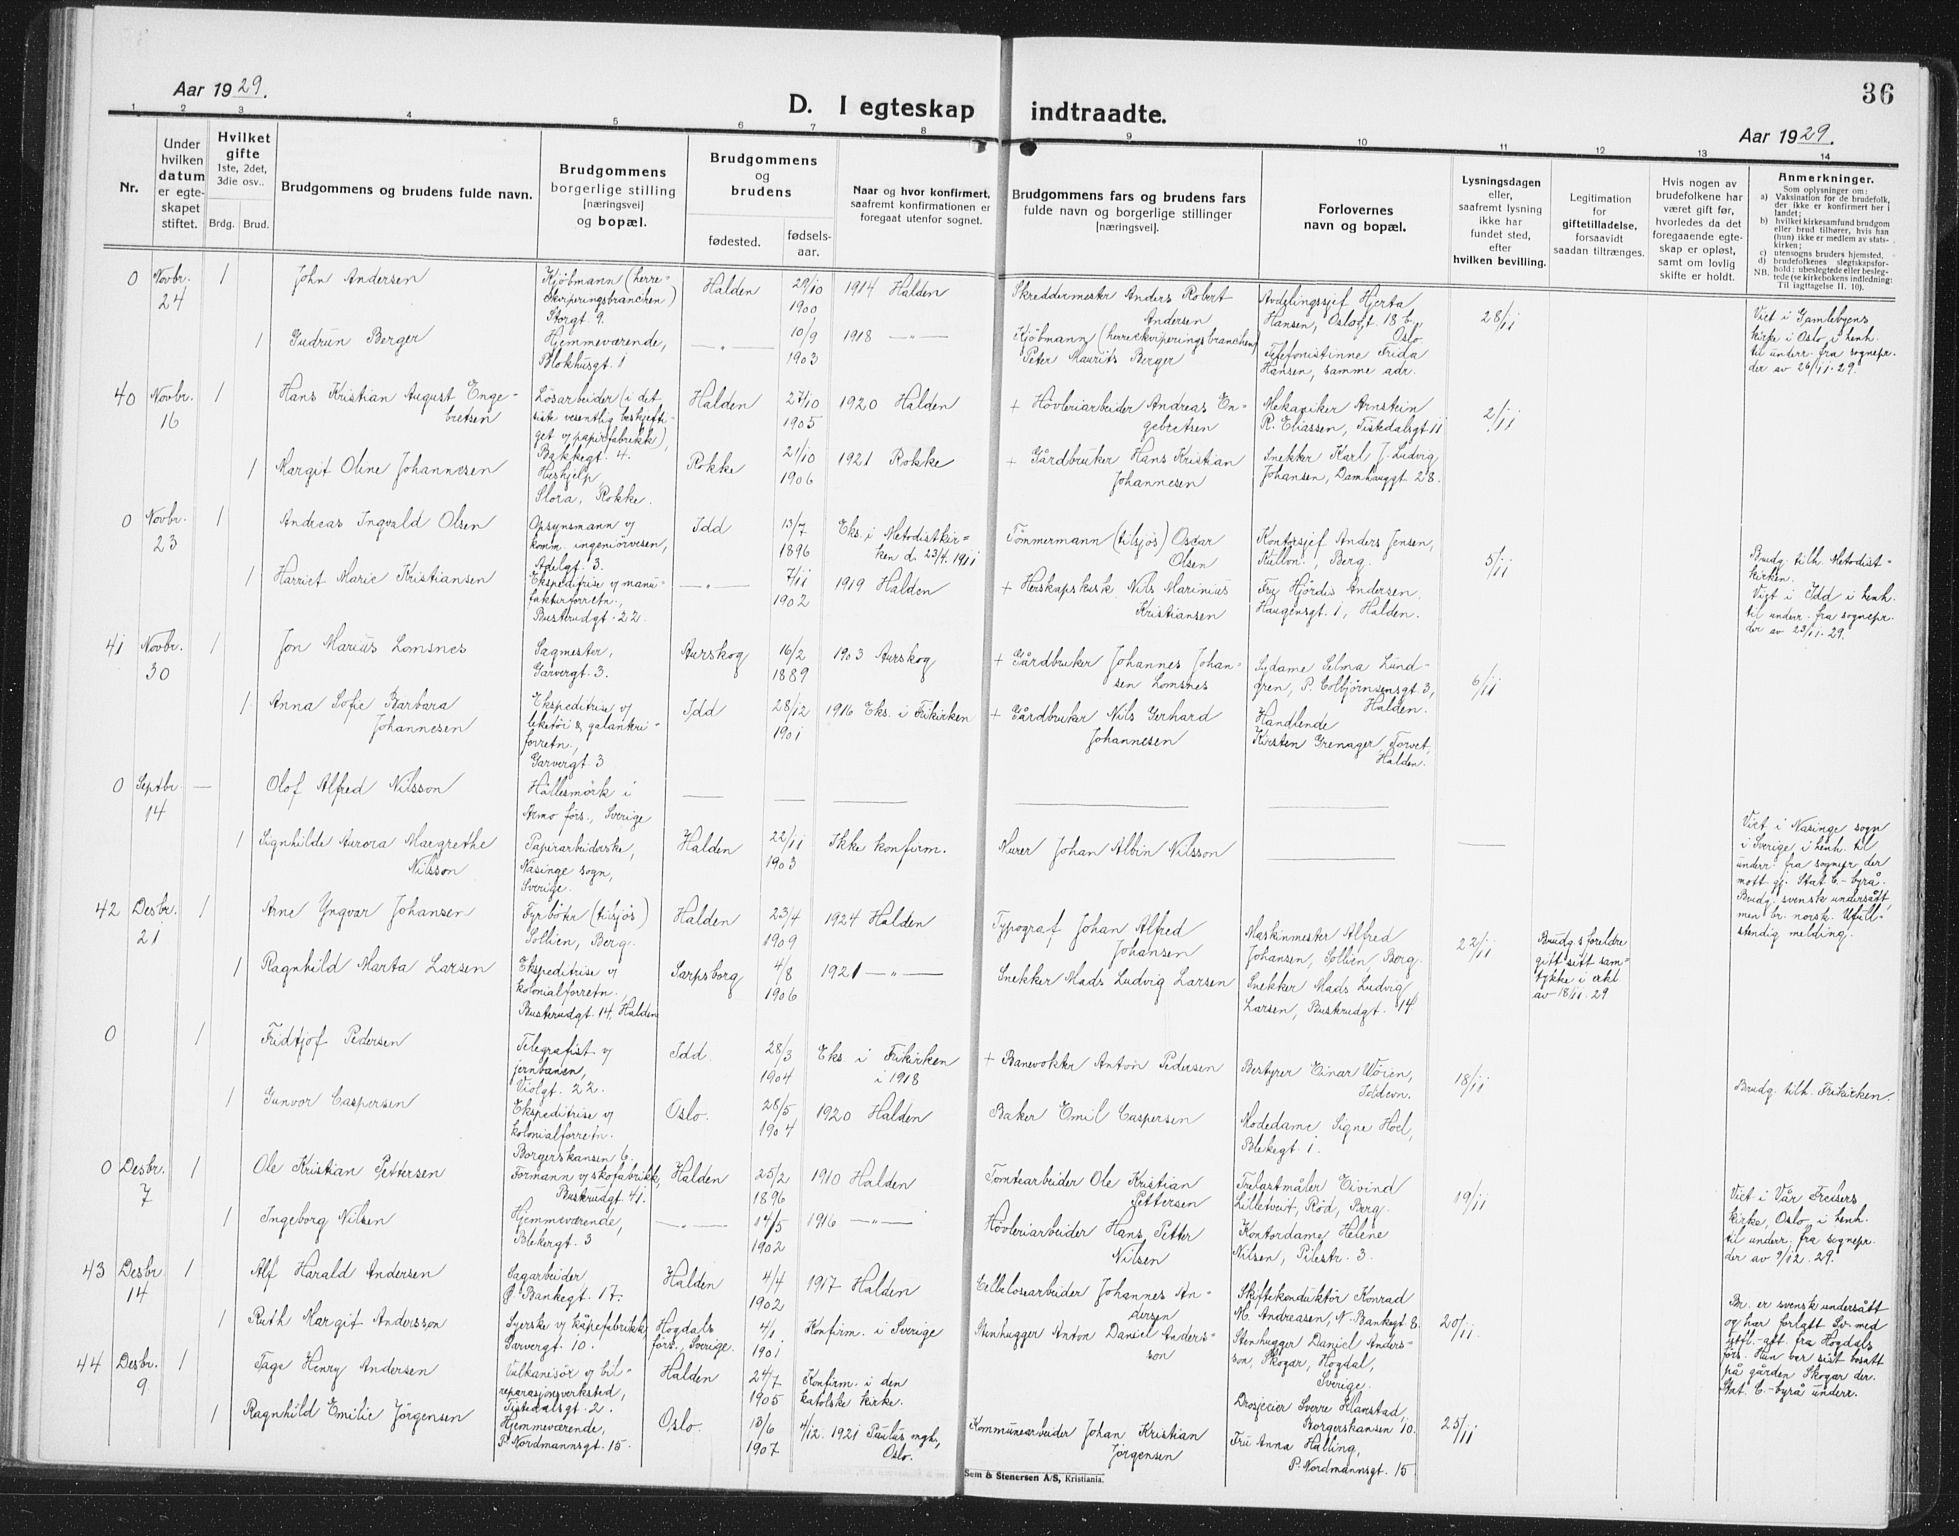 36
Aar 1929.
D. I egteskap indtraadte.
Aar 1929.
1 2 3 4 5 6 7 8 9 10 11 12 13 14
Nr.
Under
hvilken
datum
er egte-
skapet
stiftet.
Hvilket
gifte
1ste, 2det,
3die osv..
Brdg. Brud.
Brudgommens og brudens fulde navn.
Brudgommens
borgerlige stilling
[næringsvei]
og bopæl.
Brudgommens
og
brudens
fødested.
fødsels-
aar.
Naar og hvor konfirmert,
saafremt konfirmationen er
foregaat utenfor sognet.
Brudgommens fars og brudens fars
fulde navn og borgerlige stillinger
[næringsvei].
Forlovernes
navn og bopæl.
Lysningsdagen
eller,
saafremt lysning
ikke har
fundet sted,
efter
hvilken bevilling.
Legitimation
for
giftetilladelse,
forsaavidt
saadan tiltrænges.
Hvis nogen av
brudefolkene har
været gift før,
hvorledes da det
foregaaende egte-
skap er opløst,
samt om lovlig
skifte er holdt.
Anmerkninger.
Som oplysninger om:
a) Vaksination for de brudefolk,
der ikke er konfirmert her i
landet;
b) hvilket kirkesamfund brudgom
eller brud tilhører, hvis han
(hun) ikke er medlem av stats-
kirken;
c) utensogns bruders hjemsted.
d) brudefolkenes slegtskapsfor-
hold: ubeslegtede eller besleg-
tede (se kirkebokens indledning:
NB. Til iagttagelse II. 10).
0 Novbr. 24 1
John Andersen
Kjøbmann (herre-
ekviperingsbranchen)
Storgt. 9.
Halden
29/10
1900
1914 Halden
Skreddermester Anders Robert
Andersen
Avdelingssjef Hjerta
Hansen, Oslogt. 18 b,
Oslo
28/11
Viet i Gamlebyens
kirke i Oslo i henh.
til underr. fra sognepr.
der av 26/11.29.
1
Gudrun Berger
Hjemmeværende,
Blokhusgt. 1
—„—
10/9
1903
1918 —„—
Kjøbmann (herreekviperingsbranchen)
Peter Maurits Berger
Telefonistinne Frida
Hansen, samme adr.
40 Novbr. 16 1
Hans Kristian August Enge-
bretsen
Løsarbeider (i det
siste vesentlig beskjefti-
get v/ papirfabrikk),
Bakkegt. 4.
Halden
27/10
1905
1920 Halden
+ Høvleriarbeider Andreas En-
gebretsen
Mekaniker Arnstein
R. Eliassen, Tistedalsgt 11
2/11
1
Margit Oline Johannesen
Hushjelp,
Slora, Rokke.
Rokke
21/10
1906
1921 Rokke
+ Gårdbruker Hans Kristian
Johannesen
Snekker Karl J. Ludvig
Johansen, Damhauggt 28.
0 Novbr. 23 1
Andreas Ingvald Olsen
Opsynsmann v/
komm. ingeniørvesen,
Adelgt. 3.
Idd
13/7
1896
Eks. i Metodistkir-
ken d. 23/4. 1911
Tømmermann (tilsjøs) Oscar
Olsen
Kontorsjef Anders Jensen,
Berg.
5/11
Brudg. tilh. Metodist-
kirken.
Viet i Idd i henh.
til underr. fra sognepr.
der av 23/11.29.
1
Harriet Marie Kristiansen
Ekspeditrise v/ manu-
fakturforretn.,
Busterudgt. 22.
—„—
7/11
1902
1919 Halden
+ Herskapskusk Nils Marinius
Kristiansen
Fru Hjördis Andersen.
Haugensgt. 1, Halden.
41 Novbr. 30 1
Jon Marius Lomsnes
Sagmester,
Garvergt. 3.
Aurskog
16/2
1889
1903 Aurskog
+ Gårdbruker Johannes Johan-
sen Lomsnes
Sydame Selma Lund-
gren, P. Colbjørnsensgt. 3,
Halden.
6/11
1
Anna Sofie Barbara
Johannesen
Ekspeditrise v/
leketøi & galanteri-
forretn.,
Garvergt. 3
Idd
28/12
1901
1916 Eks. i Frikirken
+ Gårdbruker Nils Gerhard
Johannesen
Handlende
Kirsten Grenager, Torvet,
Halden.
0 Septbr. 14 —
Olof Alfred Nilsson
Hällesmörk i
förs., Sverige
1
Signhilde Aurora Margrethe
Nilsson
Papirarbeiderske,
Näsinge sogn,
Sverige.
Halden
22/11
1903
Ikke konfirm.
Murer Johan Albin Nilsson
Viet i Näsinge sogn
i Sverige, i henh. til
underr. fra sognepr. der
mott. gj. Stat. C.-byrå.
Brudg. svensk undersått,
men br. norsk. Ufull-
stendig melding.
42 Desbr. 21 1
Arne Yngvar Johansen
Fyrbøter (tilsjøs)
Sollien, Berg.
Halden
23/4
1909
1924 Halden
Typograf Johan Alfred
Johansen
Maskinmester Alfred
Johansen, Sollien, Berg.
22/11
Brudg.s foreldre
gitt sitt sam-
tykke i erkl
av 18/11.29
1
Ragnhild Marta Larsen
Ekspeditrise v/
kolonialforretn.,
Busterudgt. 14, Halden
Sarpsborg
4/8
1906
1921 —„—
Snekker Mads Ludvig Larsen
Snekker Mads Ludvig
Larsen, Buskrudgt. 14
0 1
Fridtjof Pedersen
Telegrafist v/
jernbanen,
Violgt. 22.
Idd.
28/3
1904
Eks i Frikirken
i 1918
+ Banevokter Anton Pedersen
Bestyrer Einar Wöien,
18/11
Brudg. tilh. Frikirken.
1
Gunvor Caspersen
Ekspeditrise v/
kolonialforretn.
Borgerskansen 6.
Oslo.
28/5
1904
1920 Halden
Baker Emil Caspersen
Modedame Signe Hoel,
Blekegt. 1.
0 Desbr. 7 1
Ole Kristian Pettersen
Formann v/ skofabrikk,
Buskrudgt. 41.
Halden
25/2
1896
1910 Halden
Tomtearbeider Ole Kristian
Pettersen
Trelastmåler Eivind
Lilletveit, Rød, Berg.
19/11
Viet i Vår Frelsers
kirke, Oslo i henh.
til underr. fra sognepr.
der av 9/12.29.
1
Ingeborg Nilsen
Hjemmeværende,
Blekergt. 3
—„—
14/5
1902
1916 —„—
Høvleriarbeider Hans Petter
Nilsen
Kontordame Helene
Nilsen, Pilestr. 3.
43 Desbr 14 1
Alf Harald Andersen
Sagarbeider
Ø. Bankegt. 17.
Halden
4/4
1902
1917 Halden
Cellulosearbeider Johannes An-
dersen
Skiftekonduktør Konrad
M. Andreasen, N. Bankegt 8.
20/11.
Br. er svensk undersått
og har forlatt Sv. med
utfl.-att. fra Hogdals
förs. Hun var sist bosatt
på gården Skogar der.
Stat. C.-byrå underr.
1
Ruth Margit Andersson
Syerske v/ kåpefabrikk,
Garvergt. 10.
Hogdals
förs., Sverige.
4/1
1901
Konfirm. i Sverige
Stenhugger Anton Daniel Anders-
son
Stenhugger Daniel Anders-
son, Skogar, Hogdal,
Sverige.
44 Desbr. 9 1
Tage Henry Andersen
Vulkanisør v/ bil-
reparasjonsverksted,
Tistedalsgt. 2.
Halden
24/7
1905
Konfirm. i den
katolske kirke.
Drosjeeier Sverre Hanstad,
Borgerskansen 10.
25/11
1
Ragnhild Emilie Jørgensen
Hjemmeværende,
P. Nordmannsgt. 15.
Oslo.
13/6
1907
4/12. 1921 Paulus mgh.,
Oslo.
Kommunearbeider Johan Kristian
Jørgensen
Fru Anna Halling,
P. Nordmannsgt. 15
Sem & Stenersen A/S, Kristiania.